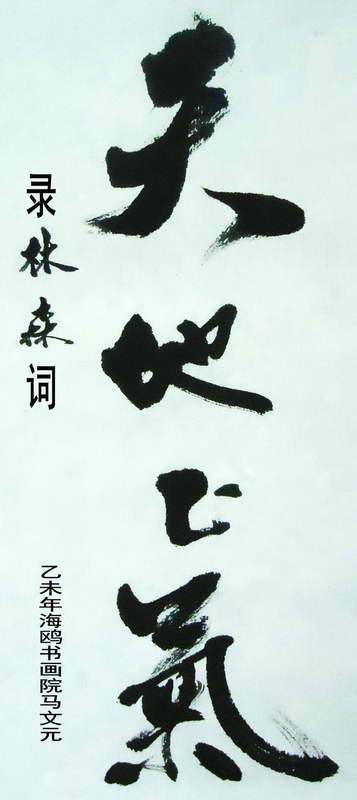 天地正氣
录林森词
乙未年海鸥书画院马文元